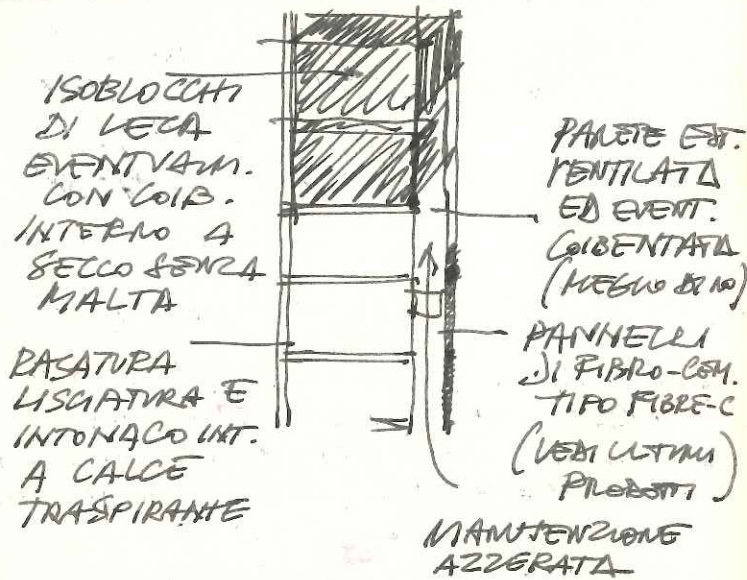 ISOBLOCCHI
DI LECA
EVENTUALM.
CON COIB.
INTERNO A
SECCO SENZA
MALTA
RASATURA
LISCIATURA E
INTONACO INT.
A CALCE
TRASPIRANTE
PARETE EST.
VENTILATA
ED EVENT.
COIBENTATA
(MEGLIO DI NO)
PANNELLI
DI FIBRO-CEM.
TIPO FIBRE-C
(VEDI ULTIMI
PRODOTTI)
MANUTENZIONE
AZZERATA